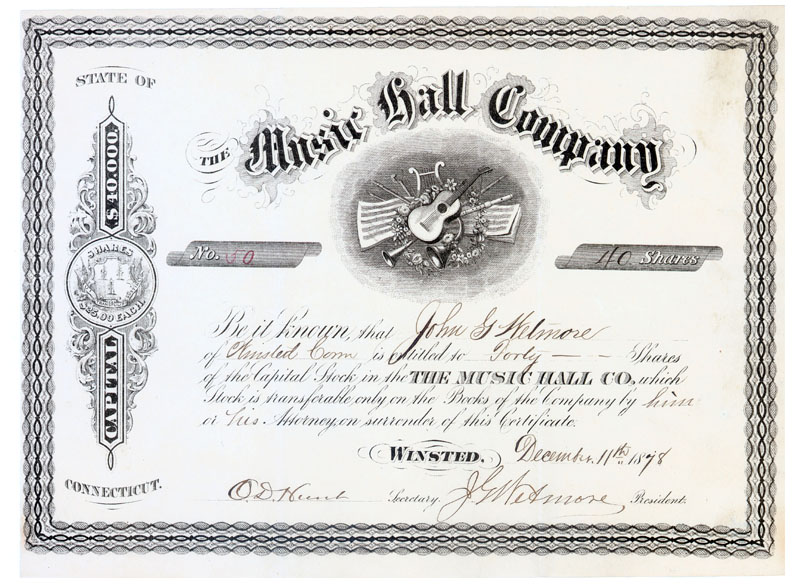 STATE OF
CAPITAL $40,000.
SHARES
$25.00 EACH.
CONNECTICUT.
THE Music Hall Company
No. 50
40 Shares
Be it known, that John G Wetmore
of Winsted Conn is entitled to Forty — — Shares
of the Capital Stock in the THE MUSIC HALL CO. which
Stock is transferable only on the Books of the Company by him
or his Attorney, on surrender of this Certificate.
WINSTED. December 11th 1878
O. D. Hunt Secretary. J G Wetmore President.